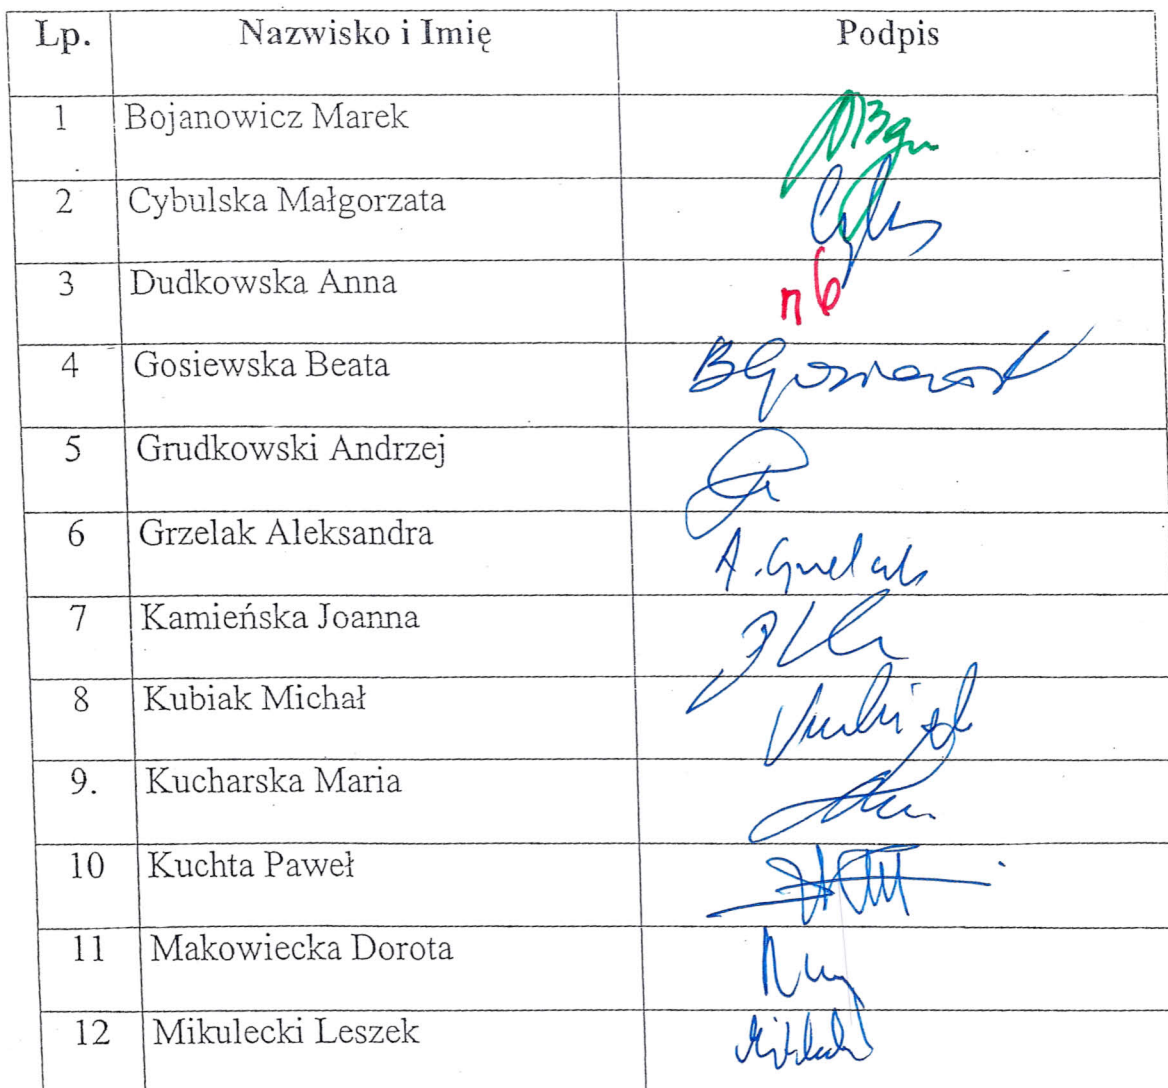 Lp. Nazwisko i Imię Podpis
1 Bojanowicz Marek
2 Cybulska Małgorzata
3 Dudkowska Anna
4 Gosiewska Beata
5 Grudkowski Andrzej
6 Grzelak Aleksandra A. Grzelak
7 Kamieńska Joanna
8 Kubiak Michał Kubiak
9. Kucharska Maria
10 Kuchta Paweł
11 Makowiecka Dorota
12 Mikulecki Leszek